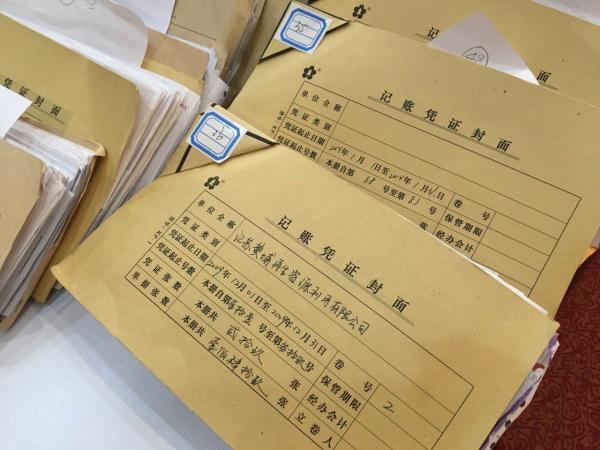 35
48
记账凭证封面
单位全称
凭证类别
凭证起止日期 年1月1日至 年1月 日
凭证起止号数 本册自第 68 号至第 83 号
卷号
保管期限
经办会计
30
记账凭证封面
单位全称 江苏黄埔再生资源利用有限公司
凭证类别
凭证起止日期 2009年12月01日至2009年12月31日 卷号
凭证起止号数 本册自第 号至第 号 保管期限 2
凭证张数 本册共 贰拾玖 张 经办会计
单据张数 本册共 壹佰肆拾玖 张 立卷人